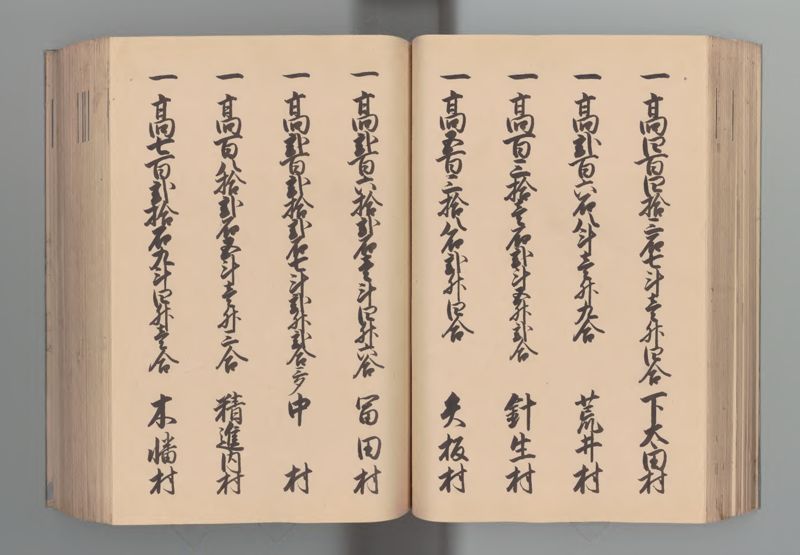 一 高四百四拾三石七斗壱升四合 下太田村
一 高弐百六石八斗壱升九合 荒井村
一 高百三拾壱石弐斗五升弐合 針生村
一 高五百三拾八石弐升四合 矢板村
一 高弐百六拾弐石壱斗四升六合 冨田村
一 高弐百弐拾弐石七斗弐升弐合三夕 中村
一 高百八拾弐石五斗壱升三合 精進内村
一 高七百弐拾石九斗四升壱合 木幡村